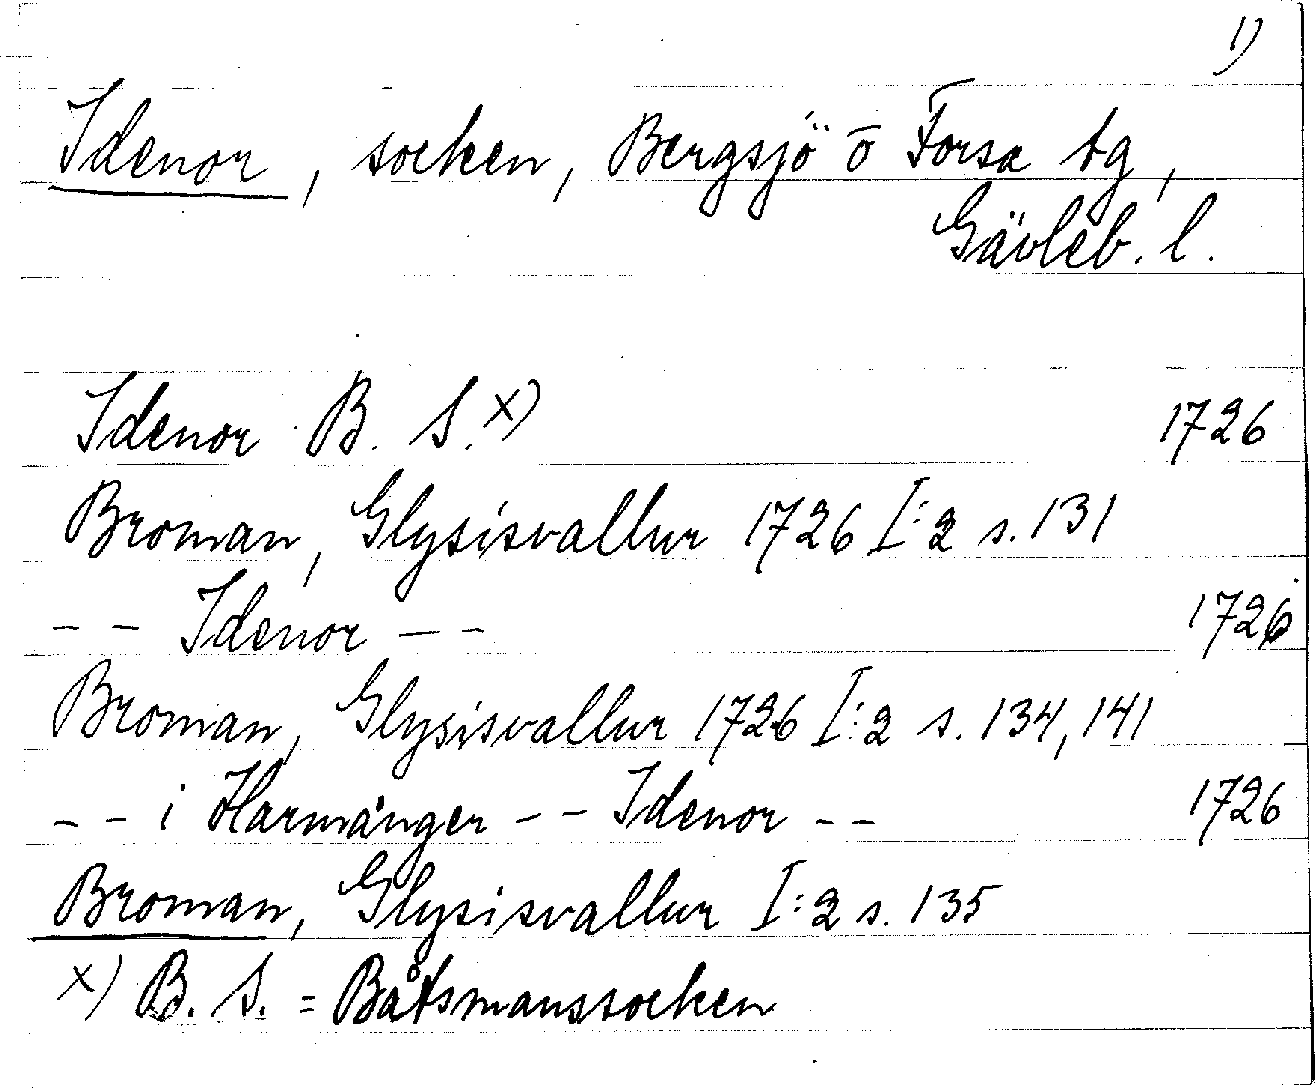 1)
Idenor, socken, Bergsjö o Forsa tg,
Gävleb. l.
Idenor B. S.x) 1726
Broman, Glysisvallur 1726 I:2 s. 131
-- Idenor -- 1726
Broman, Glysisvallur 1726 I:2 s. 134, 141
-- i Harmånger -- Idenor -- 1726
Broman, Glysisvallur I:2 s. 135
x) B. S. = Båtsmanssocken